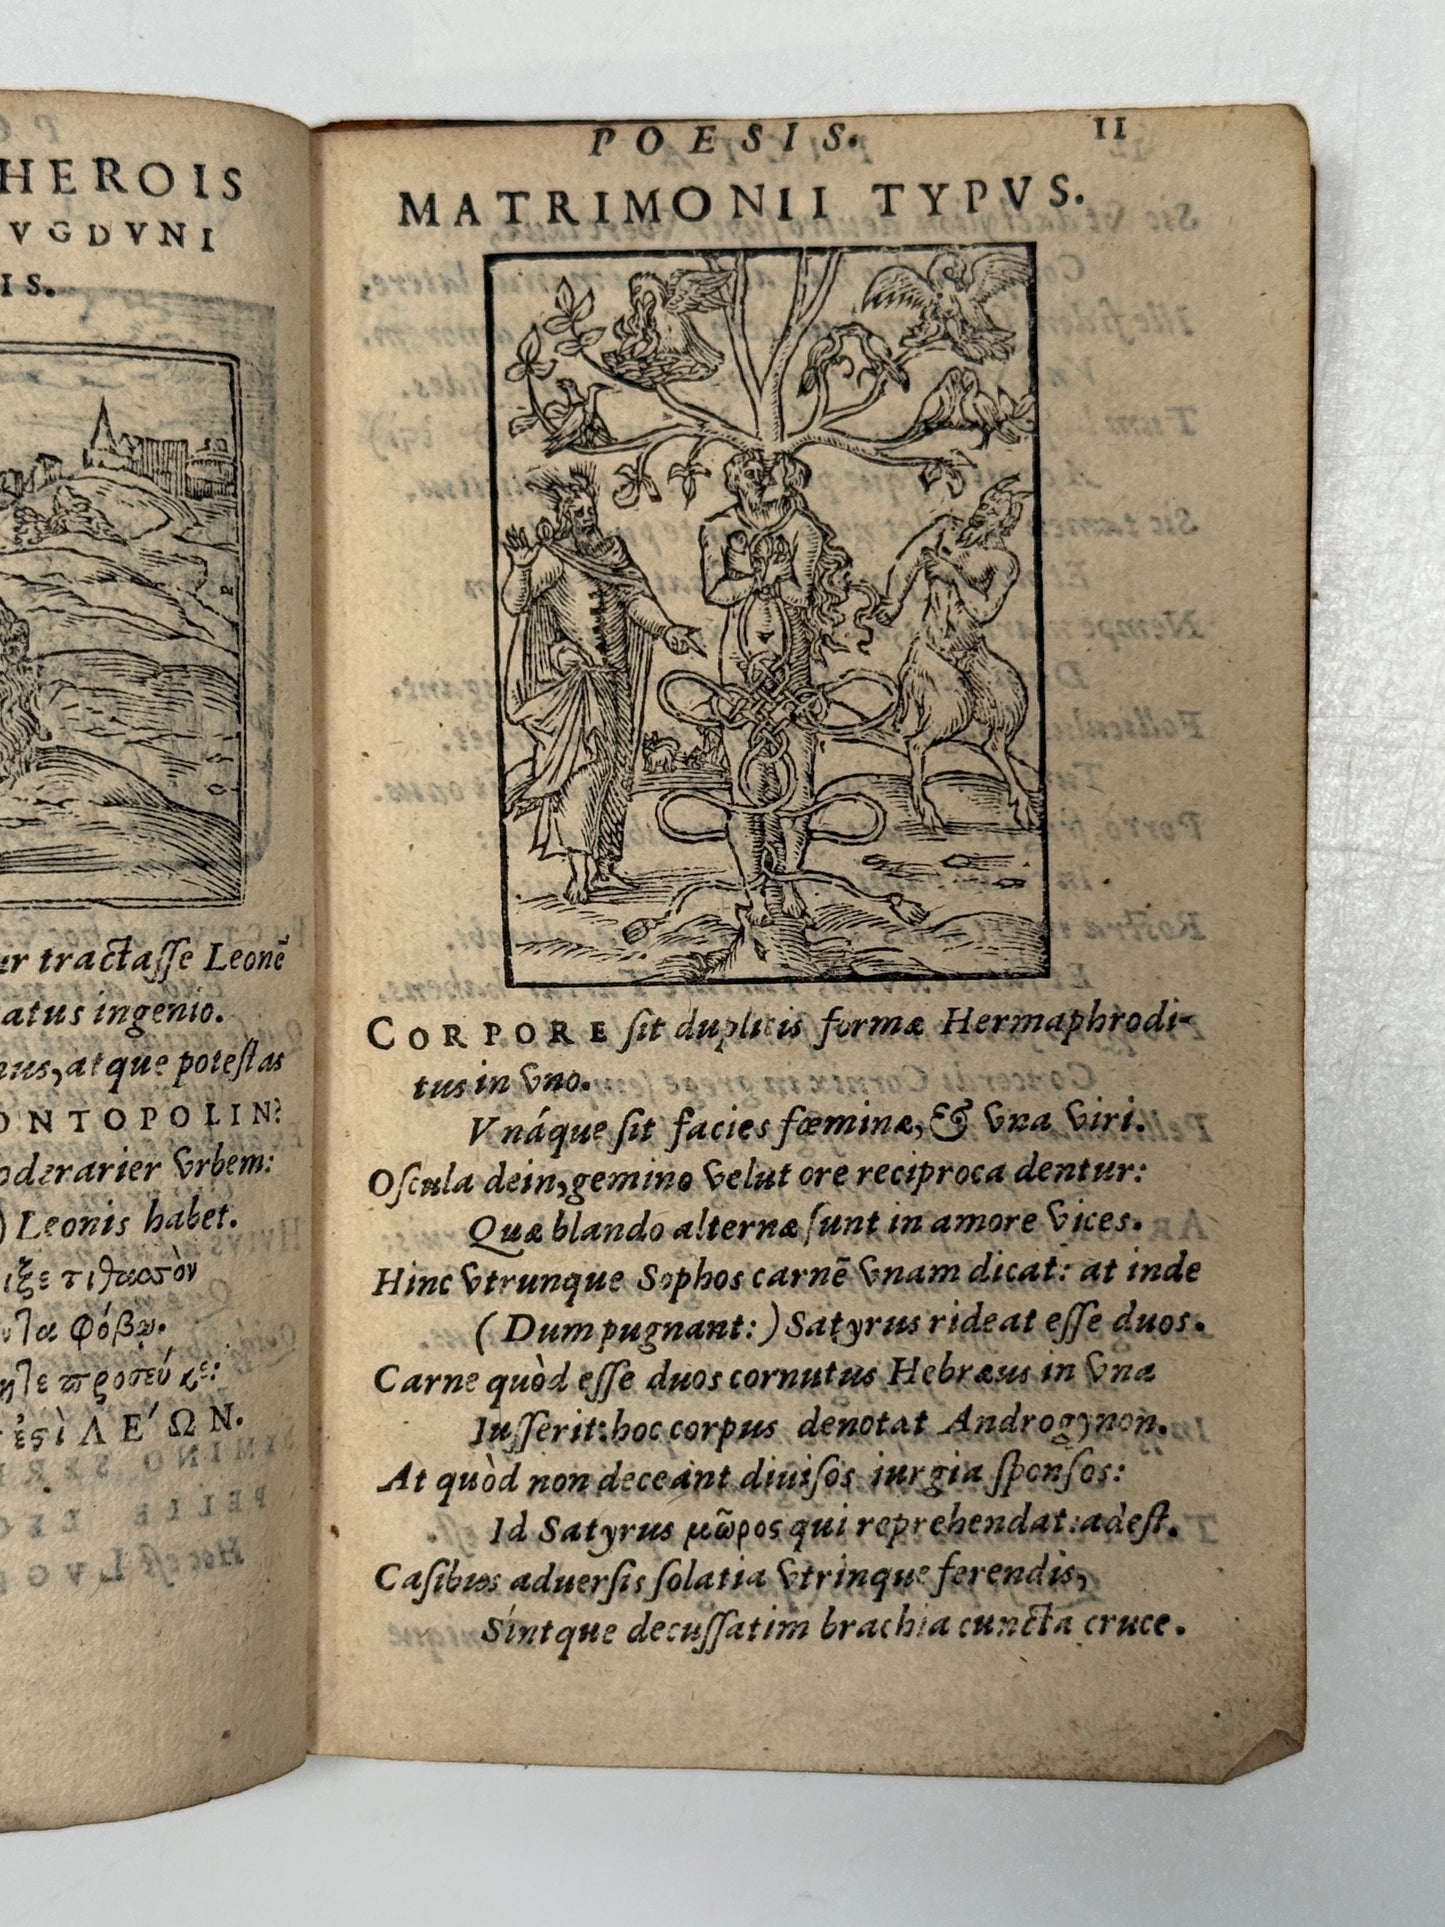 HEROIS
VGDVNI
IS.
tractaſſe Leonē
atus ingenio.
nus, atque poteſtas
ONTOPOLIN?
oderarier vrbem:
) Leonis habet.
ιξε τιθασσὸν
φόβῳ.
ΛΕ´ΩΝ.
POESIS. 11
MATRIMONII TYPVS.
CORPORE ſit duplicis formæ Hermaphrodi-
tus in vno.
Vnáque ſit facies fœminæ, & vna viri.
Oſcula dein, gemino velut ore reciproca dentur:
Quæ blando alternæ ſunt in amore vices.
Hinc vtrunque Sophos carnē vnam dicat: at inde
(Dum pugnant:) Satyrus rideat eſſe duos.
Carne quòd eſſe duos cornutus Hebræus in vna
Iuſſerit: hoc corpus denotat Androgynon.
At quòd non deceant diuiſos iurgia ſponſos:
Id Satyrus μῶρος qui reprehendat: adeſt.
Caſibus aduerſis ſolatia vtrinque ferendis,
Sintque decuſſatim brachia cuncta cruce.